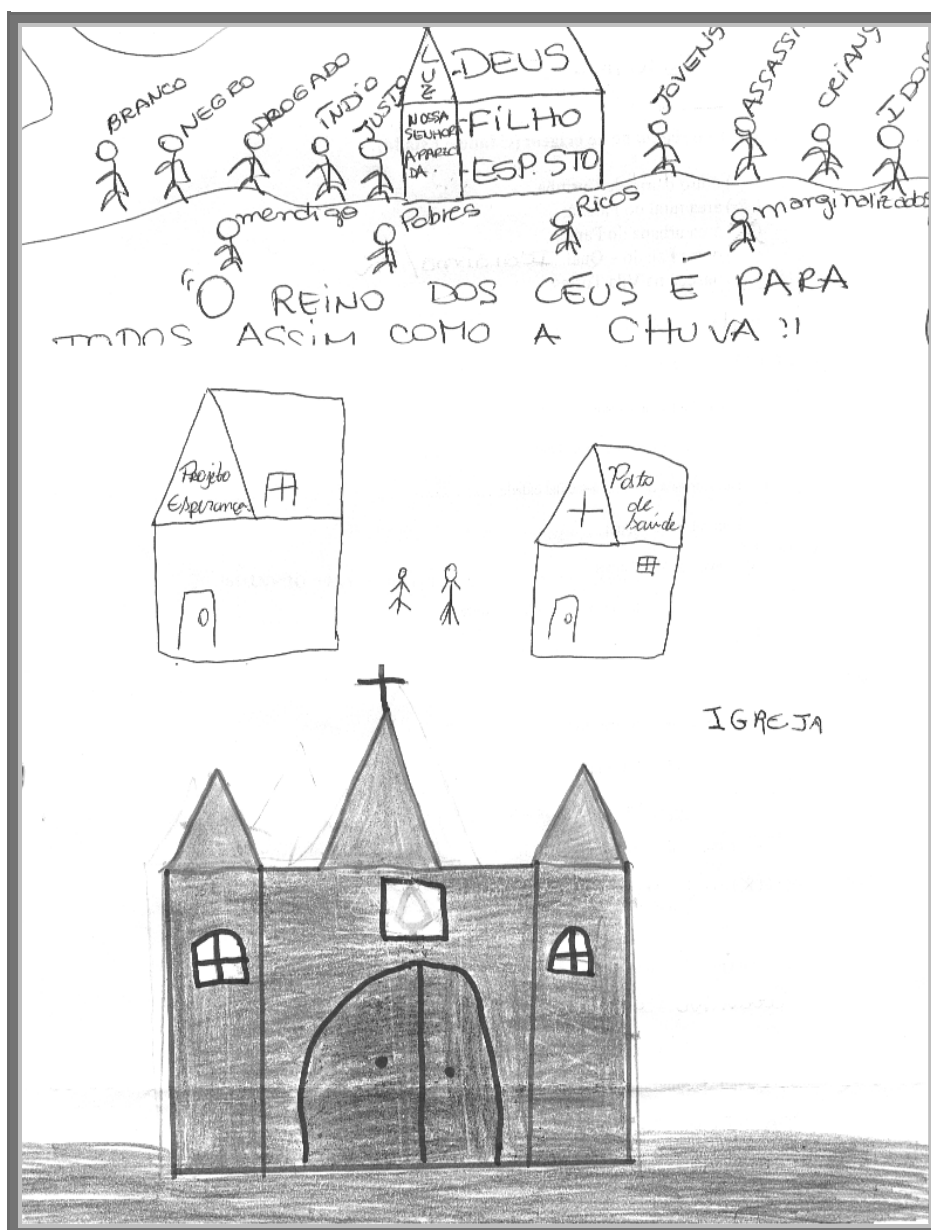 BRANCO
NEGRO
DROGADO
ÍNDIO
JUSTO
LUZ
-DEUS
NOSSA
SENHORA
APARECI
DA.
-FILHO
-ESP. STO
JOVENS
ASSASSI
CRIANS
IDOS
mendigo
Pobres
Ricos
marginalizados
"O REINO DOS CÉUS É PARA
TODOS ASSIM COMO A CHUVA"!
Projeto
Esperança
Posto
de
saúde
IGREJA